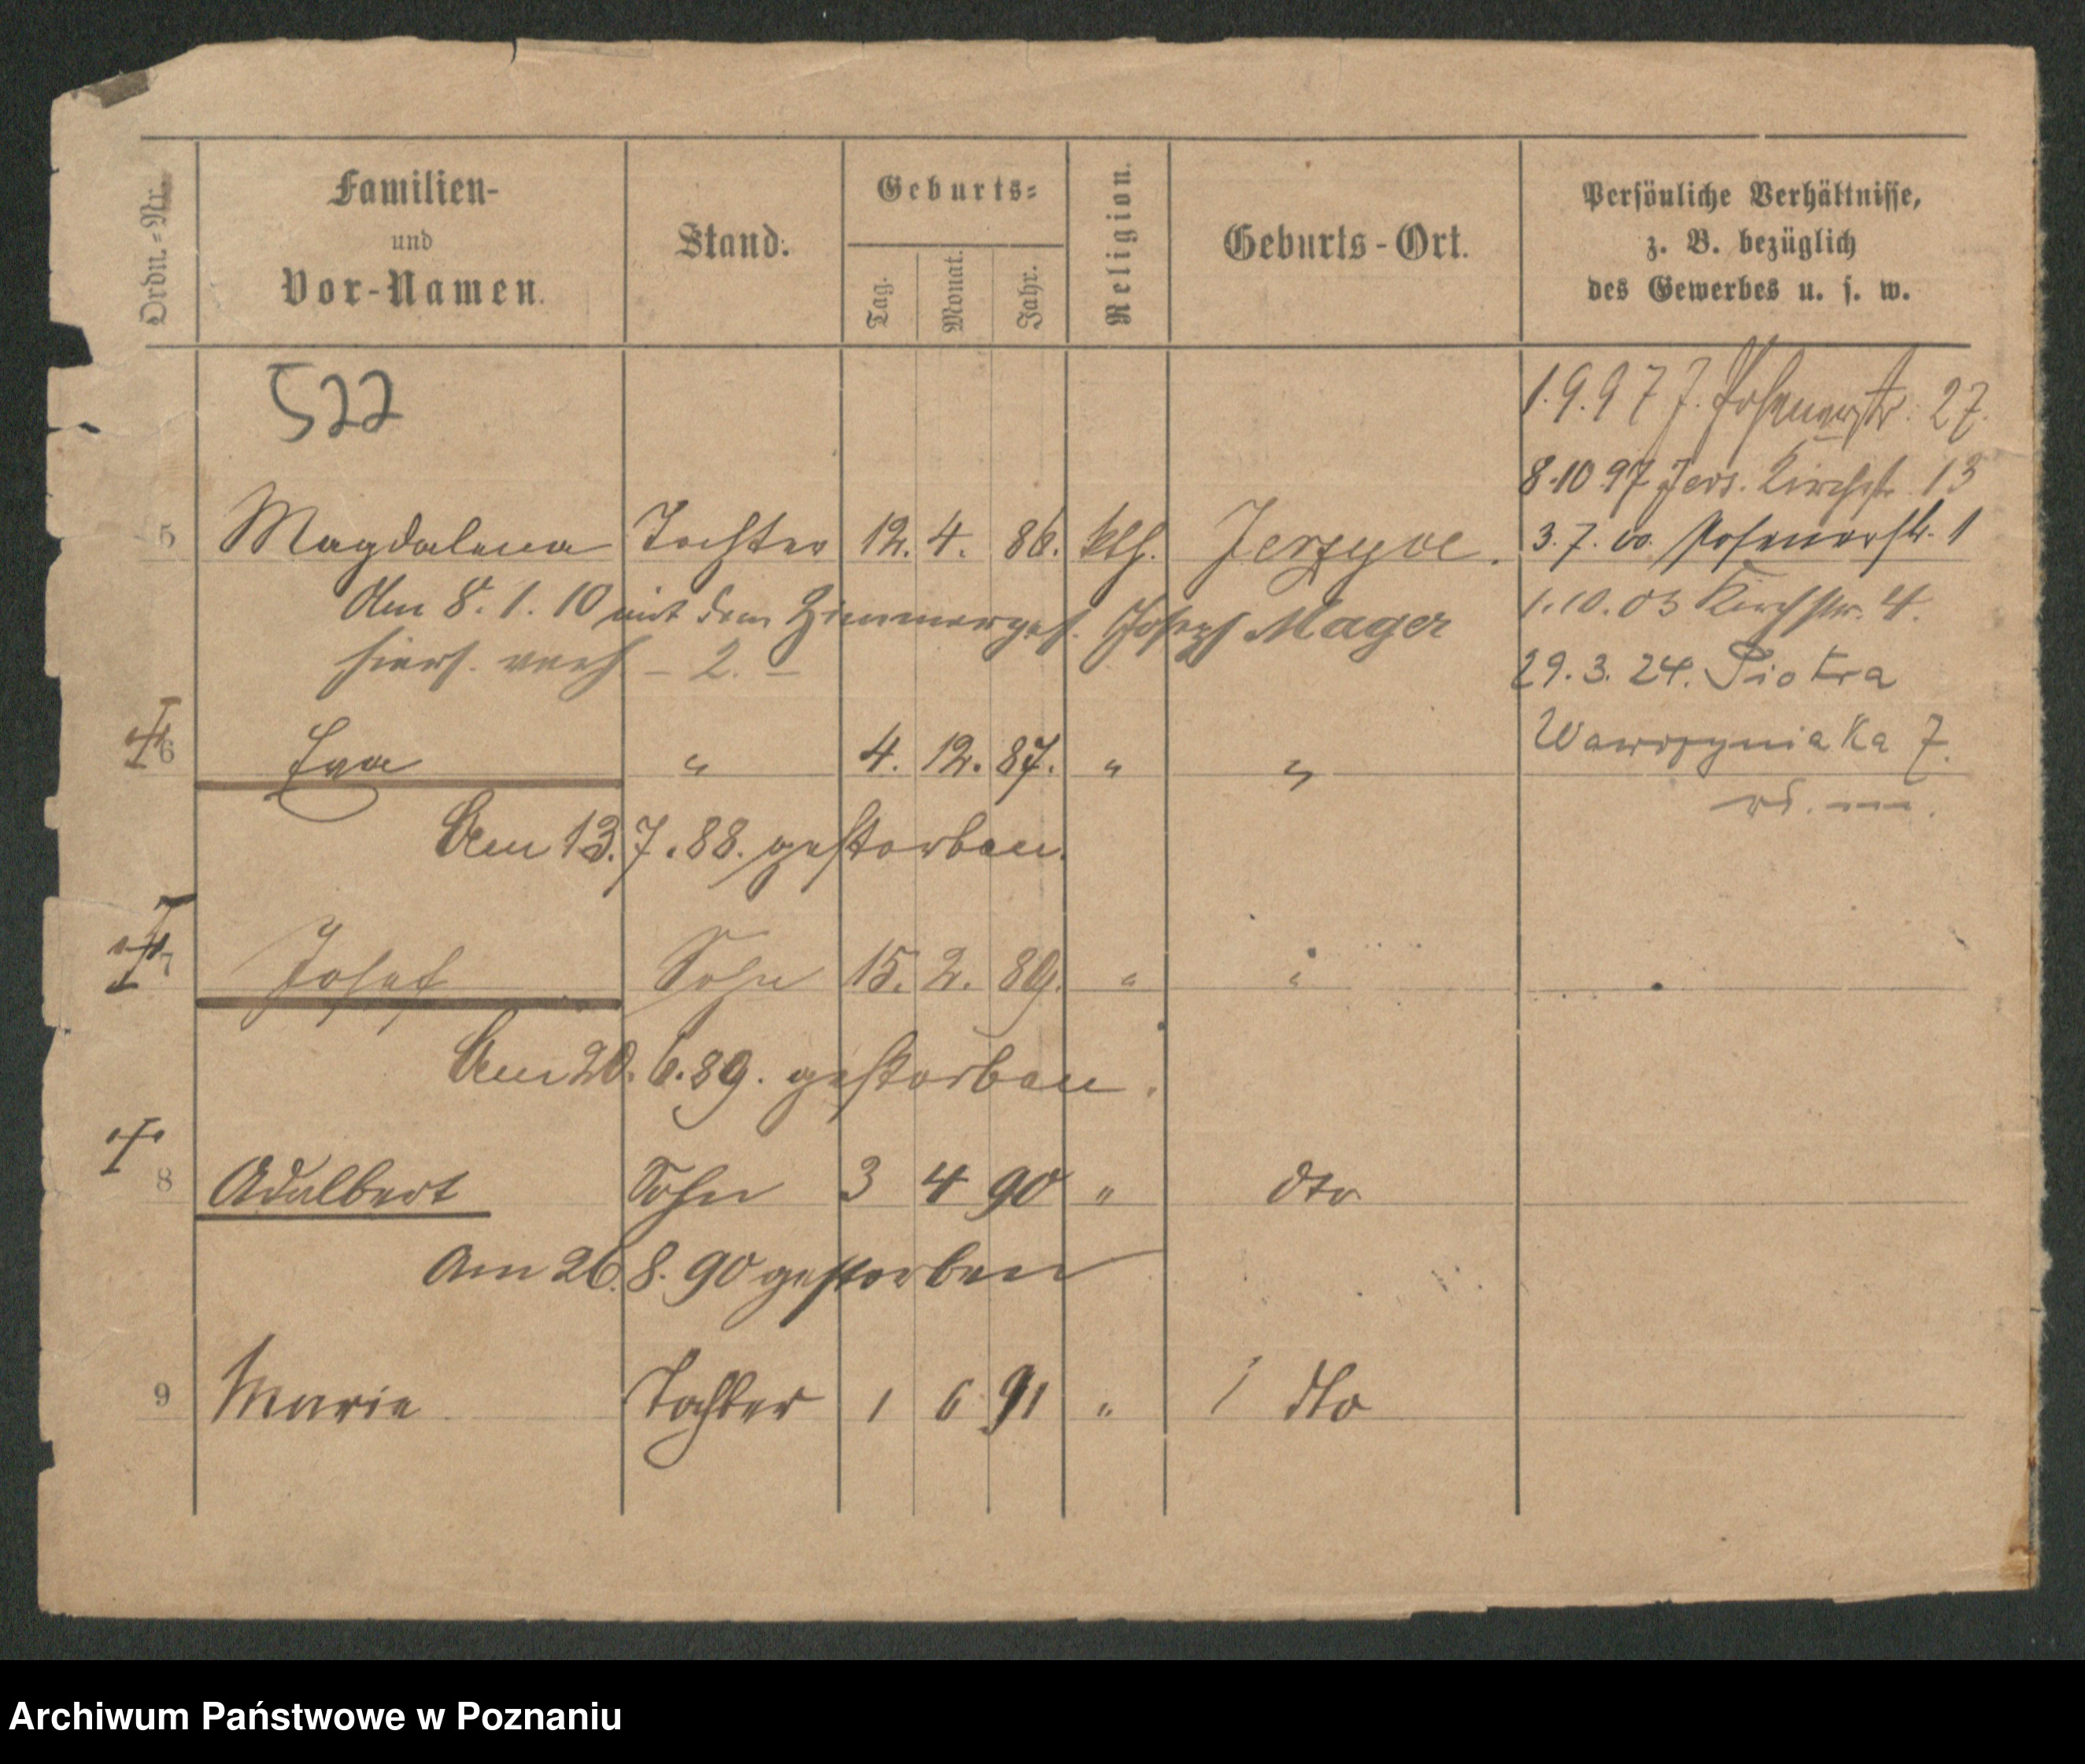 Ordn.-Nr.
Familien-
und
Vor-Namen.
Stand.
Geburts-
Tag.
Monat.
Jahr.
Religion.
Geburts-Ort.
Persönliche Verhältnisse,
z. B. bezüglich
des Gewerbes u. s. w.
522
1.9.97 J. Posenerstr. 27.
8.10.97 Jers. Kirchstr. 13
5 Magdalena Tochter 12. 4. 86. kth. Jerzyce. 3.7.00. Posenerstr. 1
Am 8.1.10 mit dem Zimmerges. Joseph Mager
1.10.03 Kirchstr. 4.
hiers. verh. – 2. –
29.3.24. Piotra
Wawrzyniaka 7.
6 Eva " 4. 12. 87. " "
Am 13.7.88. gestorben.
7 Josef Sohn 15. 2. 89. " "
Am 20.6.89. gestorben.
8 Adalbert Sohn 3 4 90 " dto
Am 26.8.90 gestorben
9 Marie Tochter 1 6 91 " dto
Archiwum Państwowe w Poznaniu